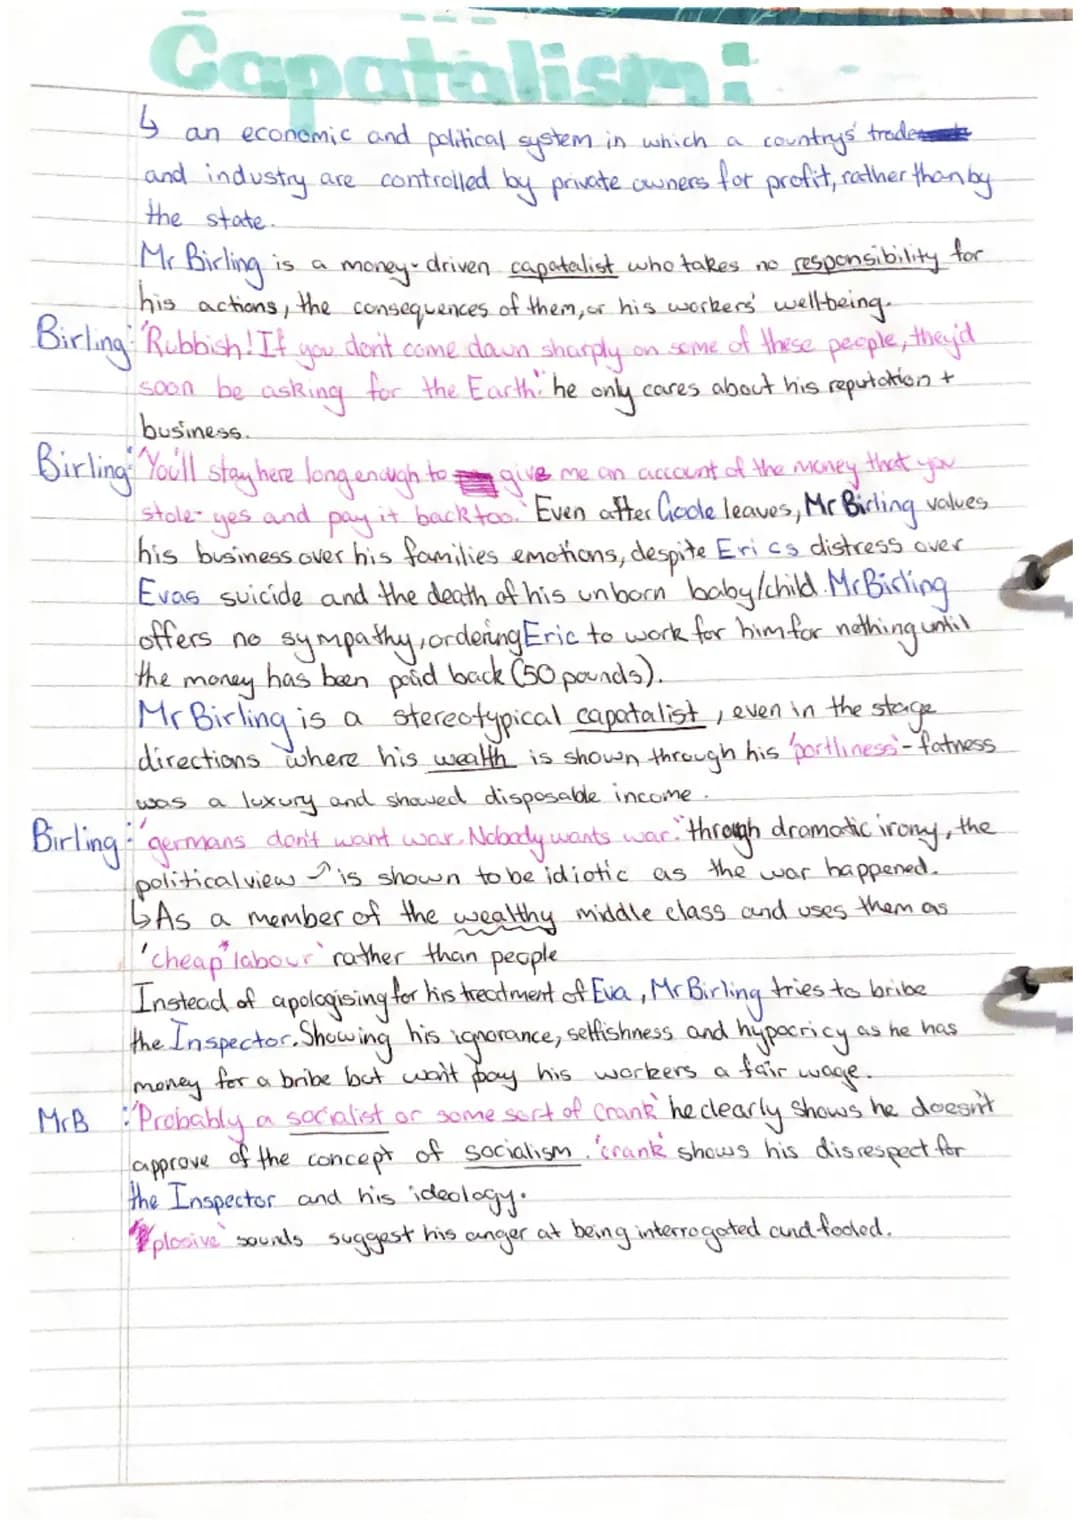 Capatalism:
↳ an economic and political system in which a countrys' trade
and industry are controlled by private owners for profit, rather than by
the state.
Mr Birling is a money-driven capatalist who takes no responsibility for
his actions, the consequences of them, or his workers' well-being.
Birling: 'Rubbish! If you don't come down sharply on some of these people, they'd
soon be asking for the Earth.' he only cares about his reputation +
business.
Birling: 'You'll stay here long enough to give me an account of the money that you
stole- yes and pay it back too.' Even after Goole leaves, Mr Birling values
his business over his families emotions, despite Erics distress over
Evas suicide and the death of his unborn baby/child. Mr Birling
offers no sympathy, ordering Eric to work for him for nothing until
the money has been paid back (50 pounds).
Mr Birling is a stereotypical capatalist, even in the stage
directions where his wealth is shown through his 'portliness' - fatness
was a luxury and showed disposable income.
Birling: 'germans don't want war. Nobody wants war.' through dramatic irony, the
political view ↗ is shown to be idiotic as the war happened.
↳ As a member of the wealthy middle class and uses them as
'cheap* labour' rather than people
Instead of apologising for his treatment of Eva, Mr Birling tries to bribe
the Inspector. Showing his ignorance, selfishness and hypocricy as he has
money for a bribe but won't pay his workers a fair wage.
MrB: 'Probably a socialist or some sort of crank' he clearly shows he doesn't
approve of the concept of socialism. 'crank' shows his disrespect for
the Inspector and his ideology.
'plosive' sounds suggest his anger at being interrogated and fooled.